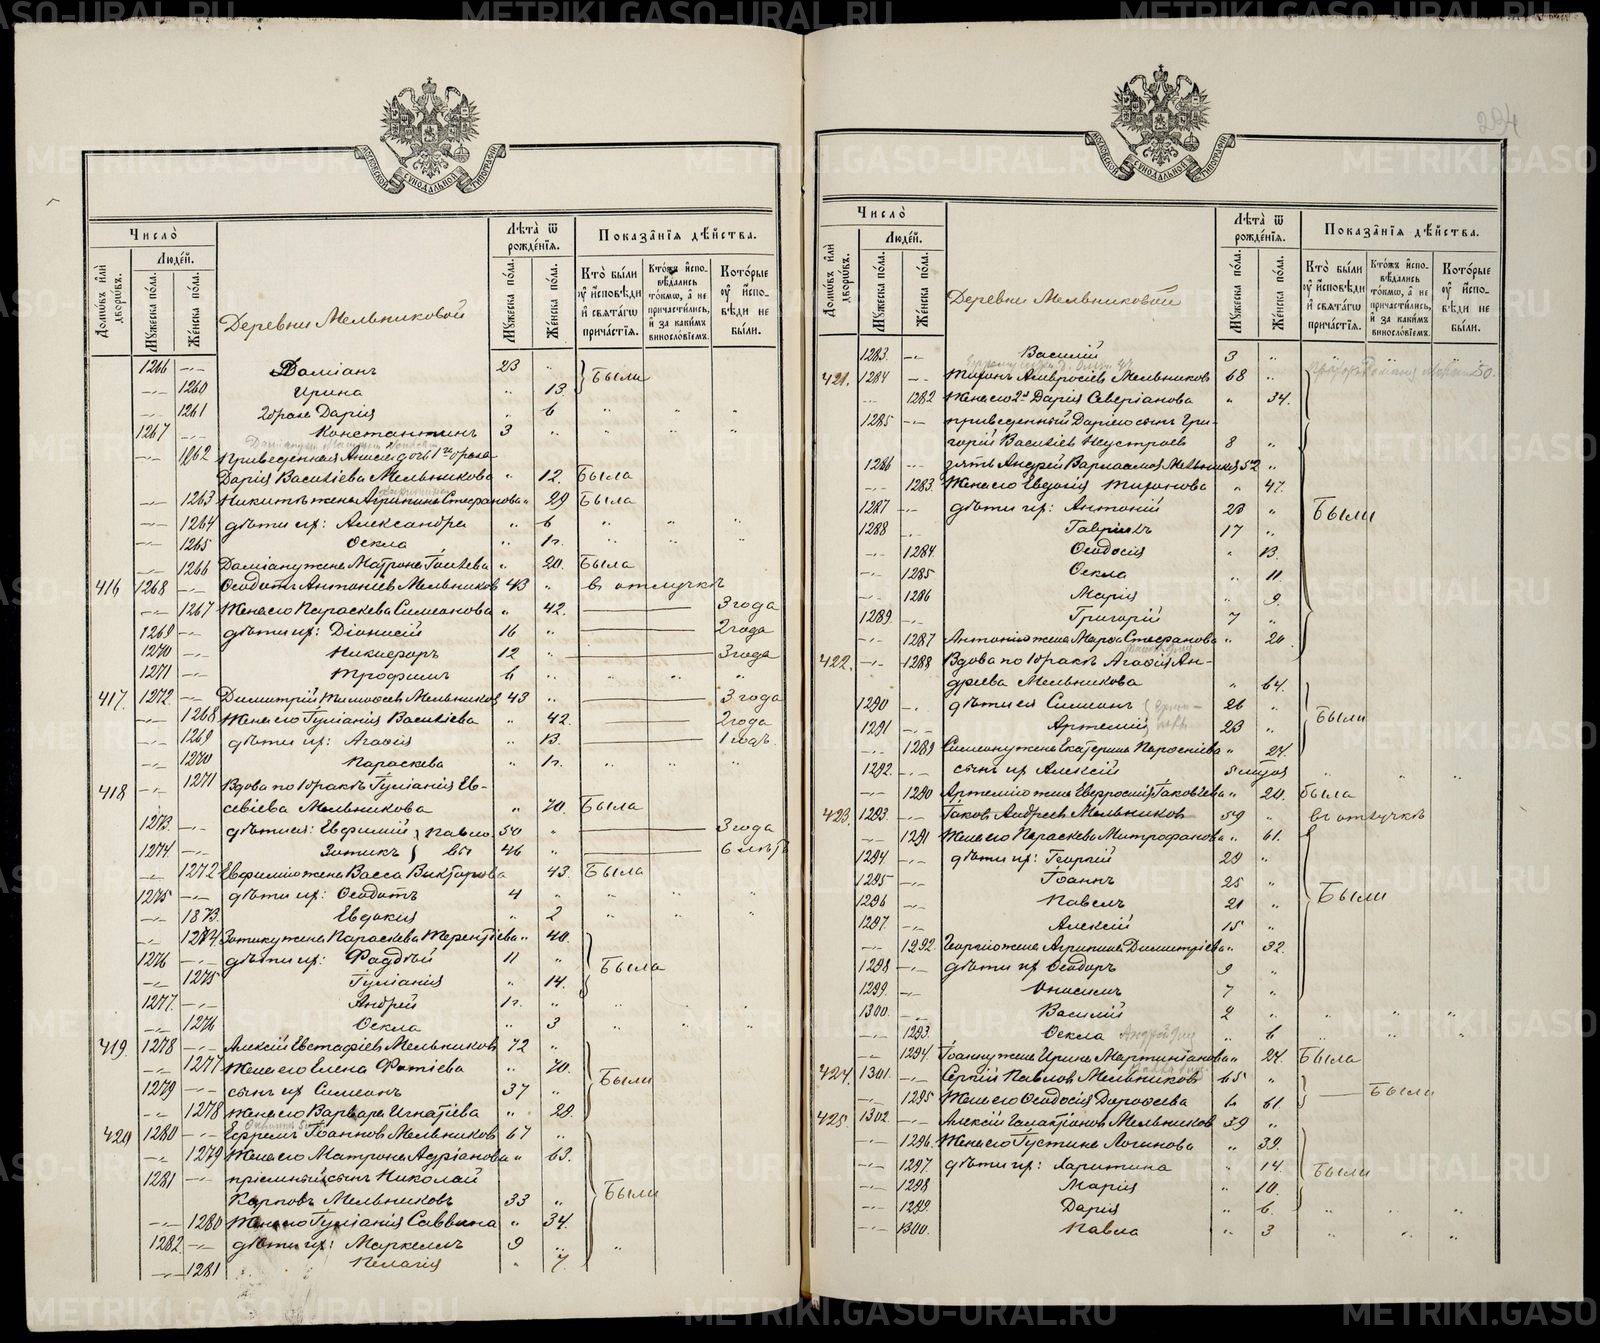 МОСКОВСКОЙ СѴНОДАЛЬНОЙ ТИПОГРАФІИ
Число̀
Людéй.
Домѡ́въ и҆лѝ дворѡ́въ.
Мꙋ́жеска по́ла.
Же́нска по́ла.
Деревни Мельниковой
Лѣ́та ѿ рожде́нїѧ.
Мꙋ́жеска по́ла.
Же́нска по́ла.
Показа̑нїѧ дѣ́йства.
Кто̀ бы́ли ᲂу҆ и҆сповѣди и҆ свѧта́гѡ прича́стїѧ.
Кто́жъ и҆спо-вѣдались то́кмѡ, а҆ не причасти́лись, и҆ за каки́мъ винословіемъ.
Кото́рые ᲂу҆ и҆спо-вѣди не бы́ли.
1266 -"- Даміанъ 23 " Были
-"- 1260 Ирина " 13
-"- 1261 2 брака Дарія " 6 " " "
1267 -"- Константинъ 3 " " " "
-"- 1262 Приведенная Анисія дочь 1го брака
Дарія Васильева Мельникова " 12. Была
-"- 1263 Никитѣ жена Агрипина Стефанова " 29 Была
-"- 1264 дѣти их: Александра " 6 " " "
-"- 1265 Ѳекла " 1г. " " "
-"- 1266 Даміану жена Матрона " 20. Была
416 1268 -"- Ѳеодотъ Антоніевъ Мельниковъ 43 " в отлучкѣ
-"- 1267 Жена его Параскева Симеонова " 42. 3 года
1269 -"- дѣти их: Діонисій 16 " 2 года
1270 -"- Никифоръ 12 " 3 года
1271 -"- Трофимъ 6 " " " "
417. 1272. -"- Димитрій Тимофеевъ Мельниковъ 43 " 3 года
-"- 1268 Жена его Іуліанія Васильева " 42. 2 года
-"- 1269 дѣти их: Агафія " 13. 1 годъ
-"- 1270 Параскева " 1г. " " "
418 -"- 1271 Вдова по 1 бракѣ Іуліанія Ев-
севіева Мельникова " 70. Была
1273. -"- дѣти ея: Евфимій } Павло 50 " 3 года
1274. -"- Зотикъ } вы 46 " 6 лѣтъ
-"- 1272 Евфимію жена Васса Викторова " 43. Была
1275 -"- дѣти их: Ѳеодотъ 4 " " " "
-"- 1873. Евдокія " 2 " " "
-"- 1274 Зотику жена Параскева Терентіева " 40. Была
1276 -"- дѣти их: Фаддѣй 11 "
-"- 1275 Іуліанія " 14.
1277. -"- Андрей 1г. " " " "
-"- 1276 Ѳекла " 3 " " "
419. 1278 -"- Алексій Евстафіевъ Мельниковъ 72 " Были
-"- 1277 Жена его Елена Фотіева " 70.
1279 -"- сынъ их Симеонъ 37 "
-"- 1278 Жена его Варвара Игнатіева " 29.
420 1280 -"- Ефремъ Іоанновъ Мельниковъ 67 " Были
-"- 1279 Жена его Матрона Адріанова " 63.
1281 -"- пріемный сынъ Николай
Карповъ Мельниковъ 33 "
-"- 1280 Жена его Іуліанія Саввина " 34.
1282. -"- дѣти их: Маркеллъ 9 " "
-"- 1281 Пелагія " 7.
МОСКОВСКОЙ СѴНОДАЛЬНОЙ ТИПОГРАФІИ
Число̀
Людéй.
Домѡ́въ и҆лѝ дворѡ́въ.
Мꙋ́жеска по́ла.
Же́нска по́ла.
Деревни Мельниковой
Лѣ́та ѿ рожде́нїѧ.
Мꙋ́жеска по́ла.
Же́нска по́ла.
Показа̑нїѧ дѣ́йства.
Кто̀ бы́ли ᲂу҆ и҆сповѣди и҆ свѧта́гѡ прича́стїѧ.
Кто́жъ и҆спо-вѣдались то́кмѡ, а҆ не причасти́лись, и҆ за каки́мъ винословіемъ.
Кото́рые ᲂу҆ и҆спо-вѣди не бы́ли.
1283. -"- Василій 3 "
421. 1284 -"- Тихонъ Амвросіевъ Мельниковъ 68 " Были
-"- 1282 Жена его 2я Дарія Северіанова " 34.
1285 -"- приведенный Даріею сынъ Гри-
горій Васильевъ Неустроевъ 8 "
1286 -"- зять Андрей Варлаамовъ Мельниковъ 52 "
-"- 1283. Жена его Евдокія Тихонова " 47.
1287 -"- дѣти их: Антоній 23 "
1288 -"- Гавріилъ 17 "
-"- 1284. Ѳеодосія " 13.
-"- 1285 Ѳекла " 11
-"- 1286 Марія " 9.
1289. -"- Григорій 7 "
-"- 1287 Антонію жена Марѳа Стефанова " 20.
422. -"- 1288 Вдова по 1 бракѣ Агафія Ан-
дреева Мельникова " 64.
1290 -"- дѣти ея Симеонъ 26 " Были
1291 -"- Артемій 23 "
-"- 1289 Симеону жена Екатерина " 24.
1292. -"- сынъ их Алексій " " "
-"- 1290 Артемію жена Евфросинія Іаковлева " 20. была
423. 1293. -"- Іаковъ Андреевъ Мельниковъ 59 " въ отлучкѣ
-"- 1291 Жена его Параскева Митрофанова " 61. Были
1294 -"- дѣти их: Георгій 29 "
1295 -"- Іоаннъ 25 "
1296 -"- Павелъ 21 "
1297. -"- Алексій 15 "
-"- 1292. Георгію жена Агрипина Димитріева " 32.
1298 -"- дѣти их Ѳеодоръ 9 "
1299. -"- Онисимъ 7 "
1300 -"- Василій 2 " " " "
-"- 1293. Ѳекла " 6 " " "
-"- 1294. Іоанну жена Ирина Мартиніанова " 24. Была
424. 1301. -"- Сергій Павловъ Мельниковъ 65 " Были
-"- 1295 Жена его Ѳеодосія Дорофеева " 61
425. 1302. -"- Алексій Мельниковъ 39 " Были
-"- 1296. Жена его Іустина Логинова " 39.
-"- 1297. дѣти их: Харитина " 14.
-"- 1298 Марія " 10.
-"- 1299. Дарія " 6. " " "
-"- 1300. Павла " 3 " " "
METRIKI.GASO-URAL.RU